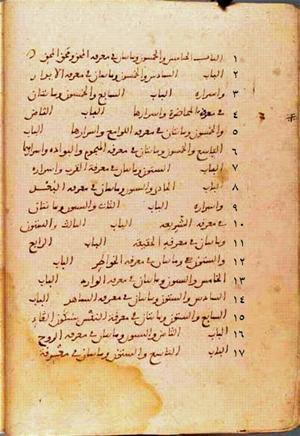 ١ الباب الخامس والخمسون ومائتان في معرفه المحق ومحق المحق
٢ الباب السادس والخمسون ومائتان في معرفه الابدار
٣ واسراره الباب السابع والخمسون ومائتان
٤ في معرفة المحاضرة واسرارها الباب الثامن
٥ والخمسون ومائتان في معرفه اللوامع واسرارها الباب
٦ التاسع والخمسون ومائتان في معرفه الهجوم والبواده واسرارهما
٧ الباب الستون ومائتان في معرفه القرب واسراره
٨ الباب الحادي والستون ومائتان في معرفه البعد
٩ واسراره الباب الثاني والستون ومائتان
١٠ في معرفه الشريعه الباب الثالث والستون
١١ ومائتان في معرفه الحقيقة الباب الرابع
١٢ والستون ومائتان في معرفه الخواطر الباب
١٣ الخامس والستون ومائتان في معرفه الوارد الباب
١٤ السادس والستون ومائتان في معرفه الشاهد الباب
١٥ السابع والستون ومائتان في معرفة النفس بسكون الفاء
١٦ الباب الثامن والستون ومائتان في معرفه الروح
١٧ الباب التاسع والستون ومائتان في معرفة